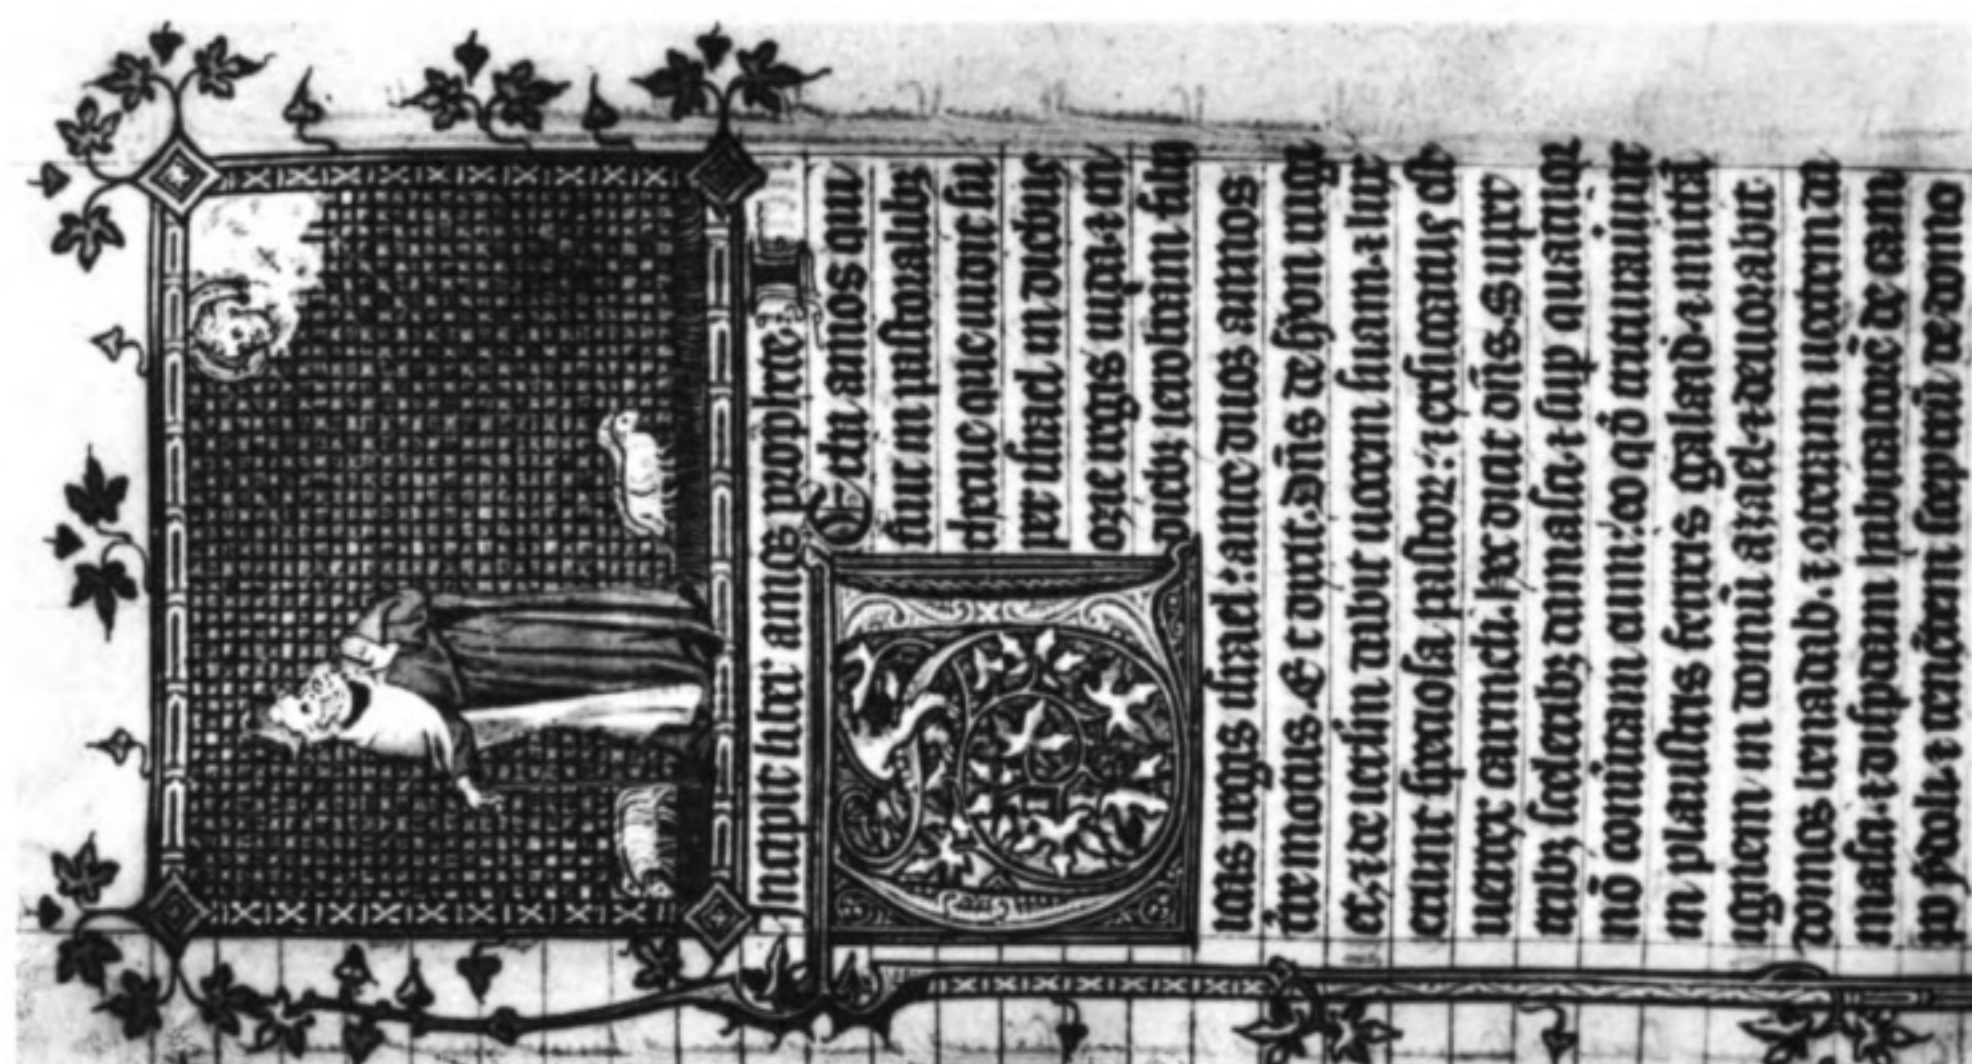 Incipit liber amos prophete
Erba amos que
fuer in pastoralibꝫ
thecue que uidit su
per israel in diebus
ozie regis iuda ⁊ in
diebꝫ ieroboam filii
ioas regis israel: ante duos annos
terremotus. Et dixit. Dñs de syon rugi
et. ⁊ de ierlm dabit uocem suam. ⁊ luxe
runt speciosa pastor: ⁊ exsiccatus est
uertex carmeli. Hec dicit dñs. Super
tribꝫ sceleribꝫ damasci ⁊ sup quatuor
nō conuertam eum: eo qd̄ triturauerint
in plaustris ferreis galaad. ⁊ mittā
ignem in domū azael. ⁊ deuorabit
domos benadab. ⁊ conteram uectem da
masci. ⁊ disperdam habitatorē de cam
po ydoli. ⁊ tenētem sceptrū de domo